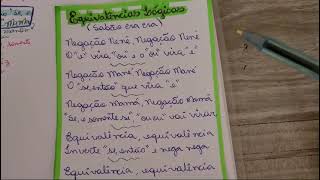 Equivalências Lógicas
(Sabão cra cra)
Negação Nenê, Negação Nenê
O "e" vira "ou" e o "ou" vira "e"
Negação Mané Negação Mané
O "se, então" que vira "e"
Negação Mamá, Negação Mamá
"Se, e somente se" "ou ou" vai virar
Equivalência, equivalência
Inverte "se, então" e nega nega
Equivalência, equivalência
somente